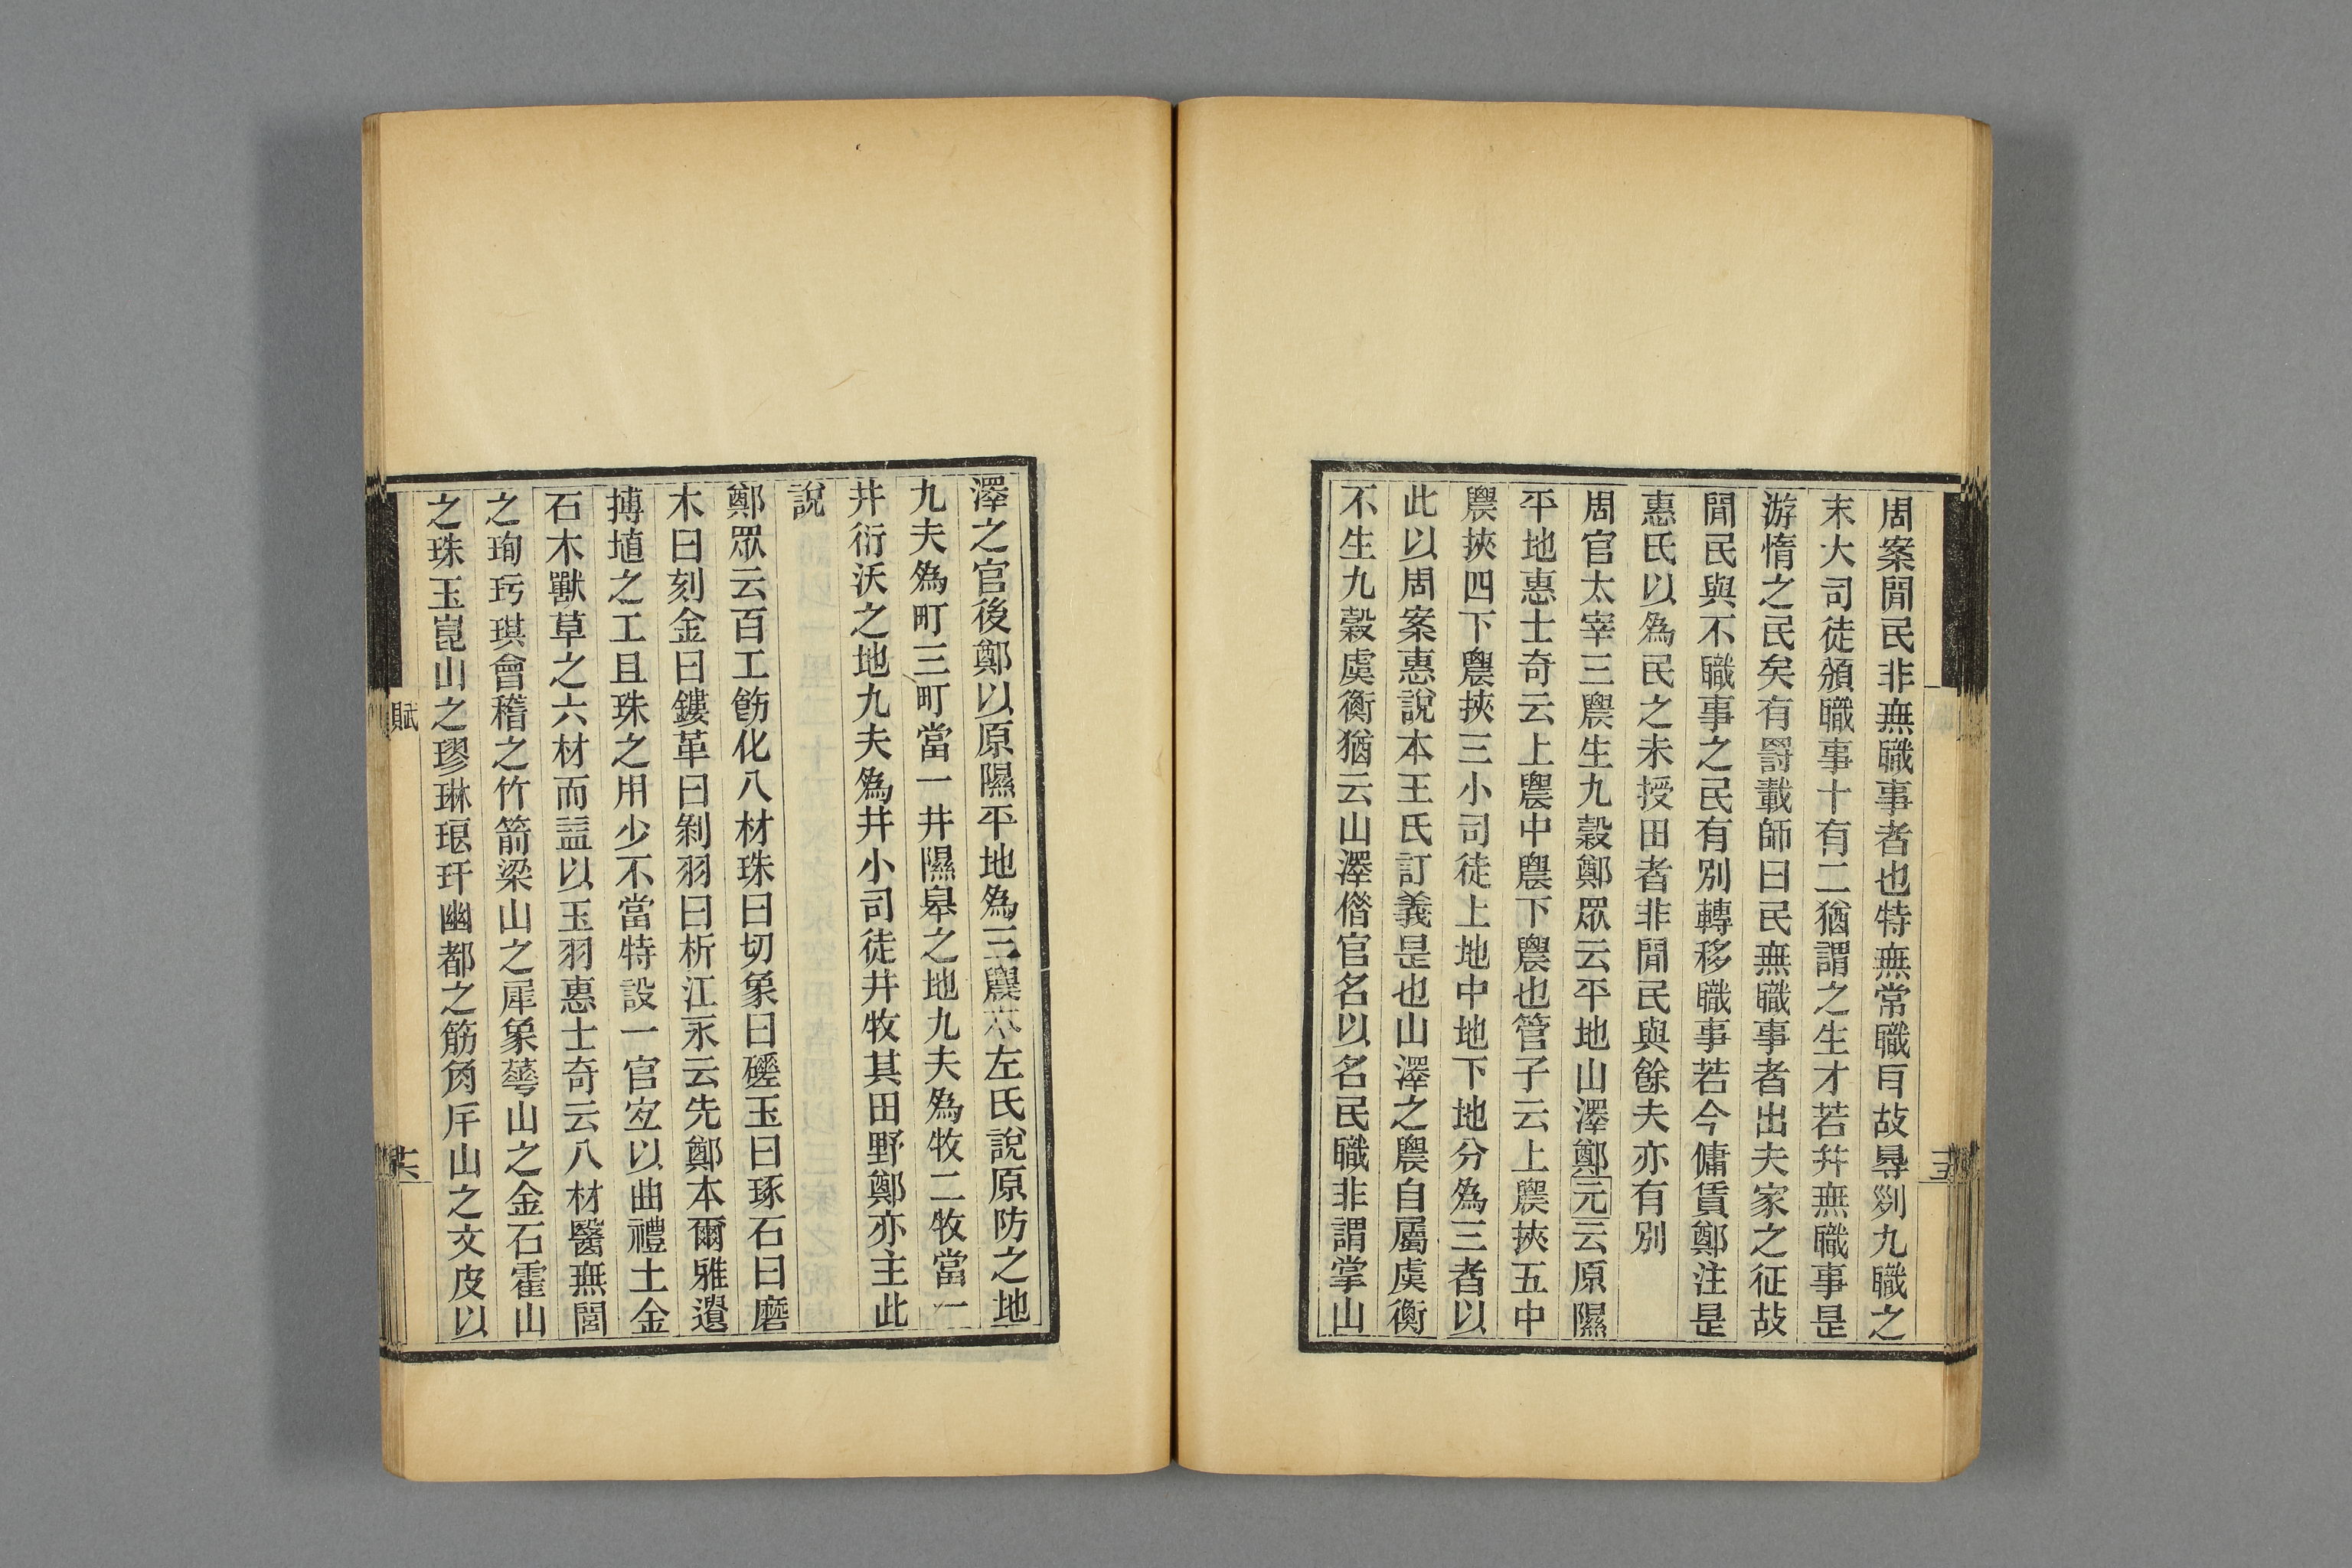 周案閒民非無職事者也特無常職𦣞故㝵𠛱九職之
末大司徒頒職事十有二猶謂之生才若幷無職事是
游惰之民矣有罸載師曰民無職事者出夫家之征故
閒民與不職事之民有別轉移職事若今傭賃鄭注是
惠氏以爲民之未授田者非閒民與餘夫亦有別
周官太宰三農生九穀鄭眾云平地山澤鄭元云原隰
平地惠士奇云上農中農下農也管子云上農挾五中
農挾四下農挾三小司徒上地中地下地分爲三者以
此以周案惠說本王氏訂義是也山澤之農自屬虞衡
不生九穀虞衡猶云山澤偕官名以名民職非謂掌山
澤之官後鄭以原隰平地爲三農本左氏說原防之地
九夫爲町三町當一井隰皋之地九夫爲牧二牧當一
井衍沃之地九夫爲井小司徒井牧其田野鄭亦主此
說
鄭眾云百工飭化八材珠曰切象曰磋玉曰琢石曰磨
木曰刻金曰鏤革曰剝羽曰析江永云先鄭本爾雅遺
搏埴之工且珠之用少不當特設一官宐以曲禮土金
石木獸草之六材而益以玉羽惠士奇云八材醫無閭
之珣玗琪會稽之竹箭梁山之犀象華山之金石霍山
之珠玉崑山之璆琳琅玕幽都之筋角斥山之文皮以
賦
五
六